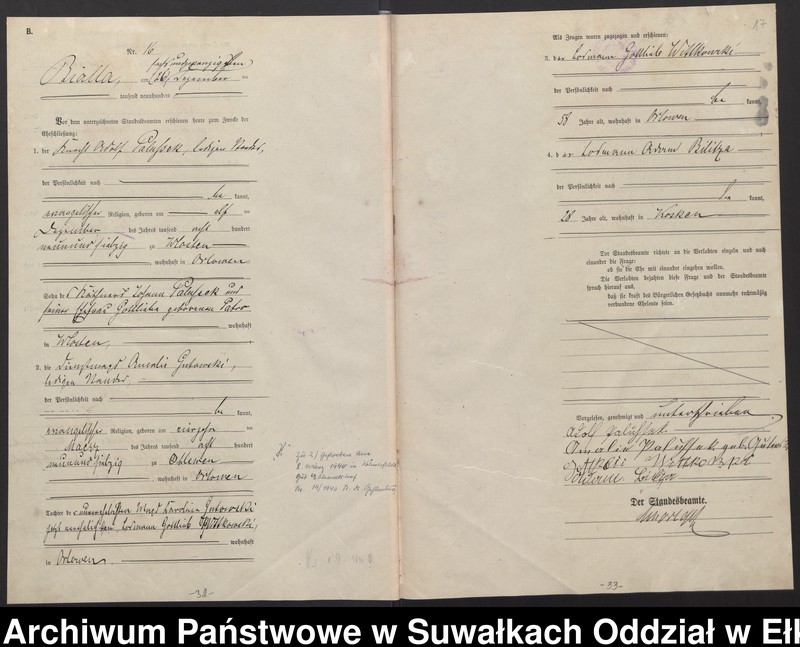 B.
Nr. 16
Bialla, am sechsundzwanzigsten
(26.) Dezember
tausend neunhundert
Vor dem unterzeichneten Standesbeamten erschienen heute zum Zwecke der
Eheschließung:
1. der Knecht Adolf Palussek, ledigen Standes,
der Persönlichkeit nach
be kannt,
evangelischer Religion, geboren am elf
Dezember des Jahres tausend acht hundert
neunundsiebzig zu Wlosten
, wohnhaft in Orlowen
Sohn des Käthners Johann Palussek und
seiner Ehefrau Gottliebe geborenen Pator
wohnhaft
in Wlosten,
2. die Dienstmagd Amalie Gutowski,
ledigen Standes,
der Persönlichkeit nach
be kannt,
evangelischer Religion, geboren am vierzehn
Maerz des Jahres tausend acht hundert
neunundsiebzig zu
, wohnhaft in Orlowen
Tochter der unverehelichten Magd Karoline Gutowski
jetzt verehelichten Losmann Gottlieb Wittkowski,
wohnhaft
in Orlowen.
-32-
17
Als Zeugen waren zugezogen und erschienen:
3. der Losmann Gottlieb Wittkowski
der Persönlichkeit nach
be kannt,
58 Jahre alt, wohnhaft in Orlowen
4. der Losmann Adam Bilitza
der Persönlichkeit nach
be kannt,
28 Jahre alt, wohnhaft in Kosken
Der Standesbeamte richtete an die Verlobten einzeln und nach
einander die Frage:
ob sie die Ehe mit einander eingehen wollen.
Die Verlobten bejahten diese Frage und der Standesbeamte
sprach hierauf aus,
daß sie kraft des Bürgerlichen Gesetzbuchs nunmehr rechtmäßig
verbundene Eheleute seien.
Vorgelesen, genehmigt und unterschrieben
Adolf Palussek
Amalie Palussek geb. Gutowski
Der Standesbeamte.
-33-
Archiwum Państwowe w Suwałkach Oddział w Ełk